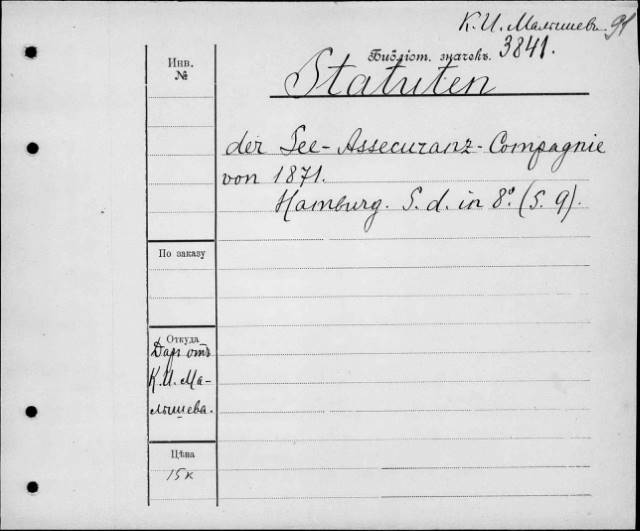 К. И. Малышевъ 91
Библіот. значекъ. 3841.
Инв.
№
Statuten
der See-Assecuranz-Compagnie
von 1871.
Hamburg. S. d. in 8º. (S. 9).
По заказу
Откуда
Даръ отъ
К. И. Ма-
лышева.
Цѣна
15 к